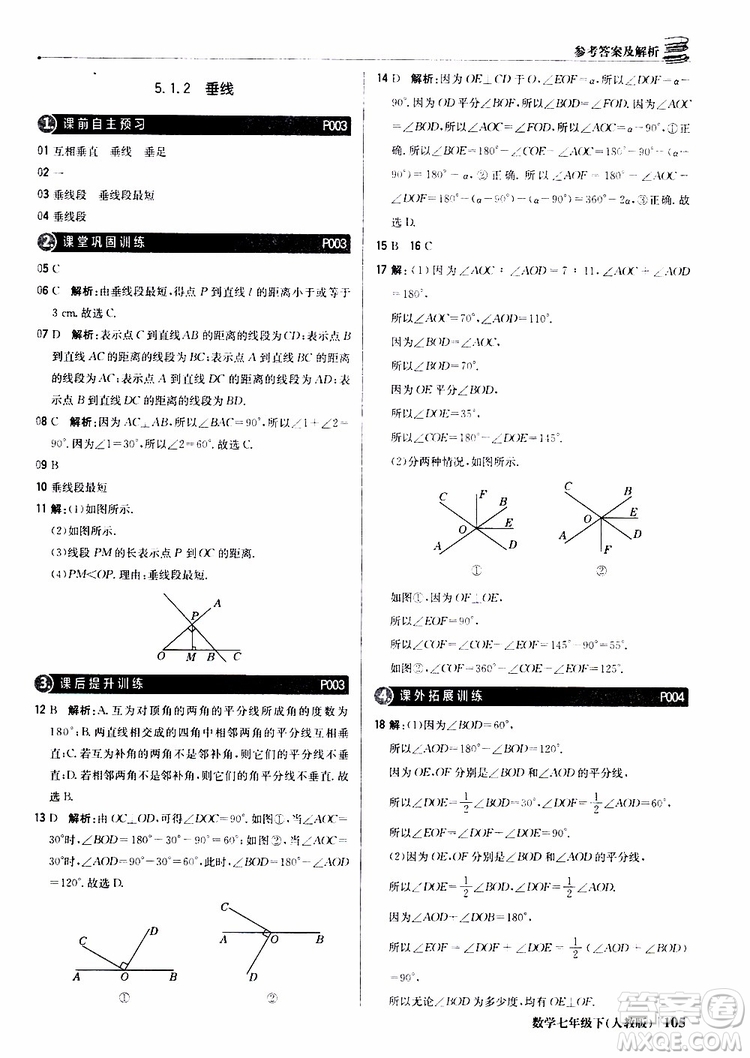 参考答案及解析
5.1.2 垂线
1. 课前自主预习 P003
01 互相垂直 垂线 垂足
02 一
03 垂线段 垂线段最短
04 垂线段
2. 课堂巩固训练 P003
05 C
06 C 解析:由垂线段最短,得点 P 到直线 l 的距离小于或等于
3 cm.故选 C.
07 D 解析:表示点 C 到直线 AB 的距离的线段为 CD;表示点 B
到直线 AC 的距离的线段为 BC;表示点 B 到直线 DC 的距离
的线段为 BD;表示点 A 到直线 DC 的距离的线段为 AD;表
示点 A 到直线 BC 的距离的线段为 AC;
08 C 解析:因为 AC⊥AB,所以∠BAC=90°,所以∠1+∠2=
90°.因为∠1=30°,所以∠2=60°.故选 C.
09 B
10 垂线段最短
11 解:(1)如图所示.
(2)如图所示.
(3)线段 PM 的长表示点 P 到 OC 的距离.
(4)PM<OP.理由:垂线段最短.
A
P
O M B C
3. 课后提升训练 P003
12 B 解析:A.互为对顶角的两角的平分线所成角的角度为
180°;B.两直线相交的四角中
C.若若互为邻补角,则
直;D.若若两角不是邻补角,
选 B.
13 D 解析:由 OC⊥OD,可得∠DOC=90°.如图①,当∠AOC=
30°时,∠BOD=180°-30°-90°=60°;如图②,当∠AOC=
30°时,∠AOD=90°-30°=60°,此时,∠BOD=180°-∠AOD
=120°.故选 D.
C D
A O B
①
C
A O B
D
②
14 D 解析:因为 OE⊥CD 于 O,∠EOF=α,所以∠DOF=α-
90°.因为 OD 平分∠BOF,所以∠BOD=∠FOD.因为∠AOC
=∠BOD,所以∠AOC=∠FOD,所以∠AOC=α-90°,①正
确.所以∠BOE=180°-∠COE-∠BOD=180°-90°-(α-
90°)=180°-α,②正确.所以∠AOF=180°-∠AOC-
∠DOF=180°-(α-90°)-(α-90°)=360°-2α,③正确.故
选 D.
15 B 16 C
17 解:(1)因为∠AOC:∠AOD=7:11,∠AOC+∠AOD
=180°,
所以∠AOC=70°,∠AOD=110°.
所以∠BOD=∠AOC
所以∠BOD=70°.
因为 OE 平分∠BOD,
所以∠DOE=35°,
所以∠COE=180°-∠DOE=145°.
(2)分两种情况,如图所示.
C F B
O E
A D
①
C B
O E
A F D
②
如图①,因为 OF⊥OE,
所以∠EOF=90°.
所以∠COF=∠COE-∠EOF=145°-90°=55°.
如图②,∠COF=360°-∠COE-∠EOF=125°.
4. 课外拓展训练 P004
18 解:(1)因为∠BOD=60°,
所以∠AOD=180°-∠BOD=120°.
因为 OE,OF 分别是∠AOD 和∠BOD 的平分线,
所以∠DOF=1/2∠BOD=30°,∠DOE=1/2∠AOD=60°,
所以∠EOF=∠DOF+∠DOE=90°.
(2)因为 OE,OF 分别是∠AOD 和∠BOD 的平分线,
所以∠DOF=1/2∠BOD,∠DOE=1/2∠AOD.
因为∠AOD+∠DOB=180°,
所以∠EOF=∠DOF+∠DOE=1/2(∠BOD+∠AOD)
=90°.
所以无论∠BOD 为多少度,均有 OE⊥OF.
数学七年级下(人教版) 105